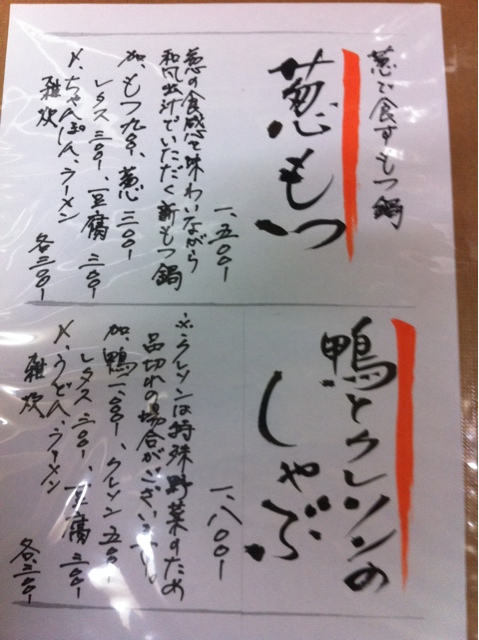 葱で食すもつ鍋
葱もつ
一、五〇〇-
葱の食感を味わいながら
和風出汁でいただく新もつ鍋
加、もつ九〇〇-、葱三〇〇-
レタス三〇〇-、豆腐三〇〇-
〆、ちゃんぽん、ラーメン
雑炊 各三〇〇-
鴨とクレソンの
しゃぶ
一、八〇〇-
※クレソンは特殊野菜のため
品切れの場合がございます。
加、鴨一、〇〇〇-、クレソン五〇〇-
レタス三〇〇-、豆腐三〇〇-
〆、うどん、ラーメン
雑炊 各三〇〇-